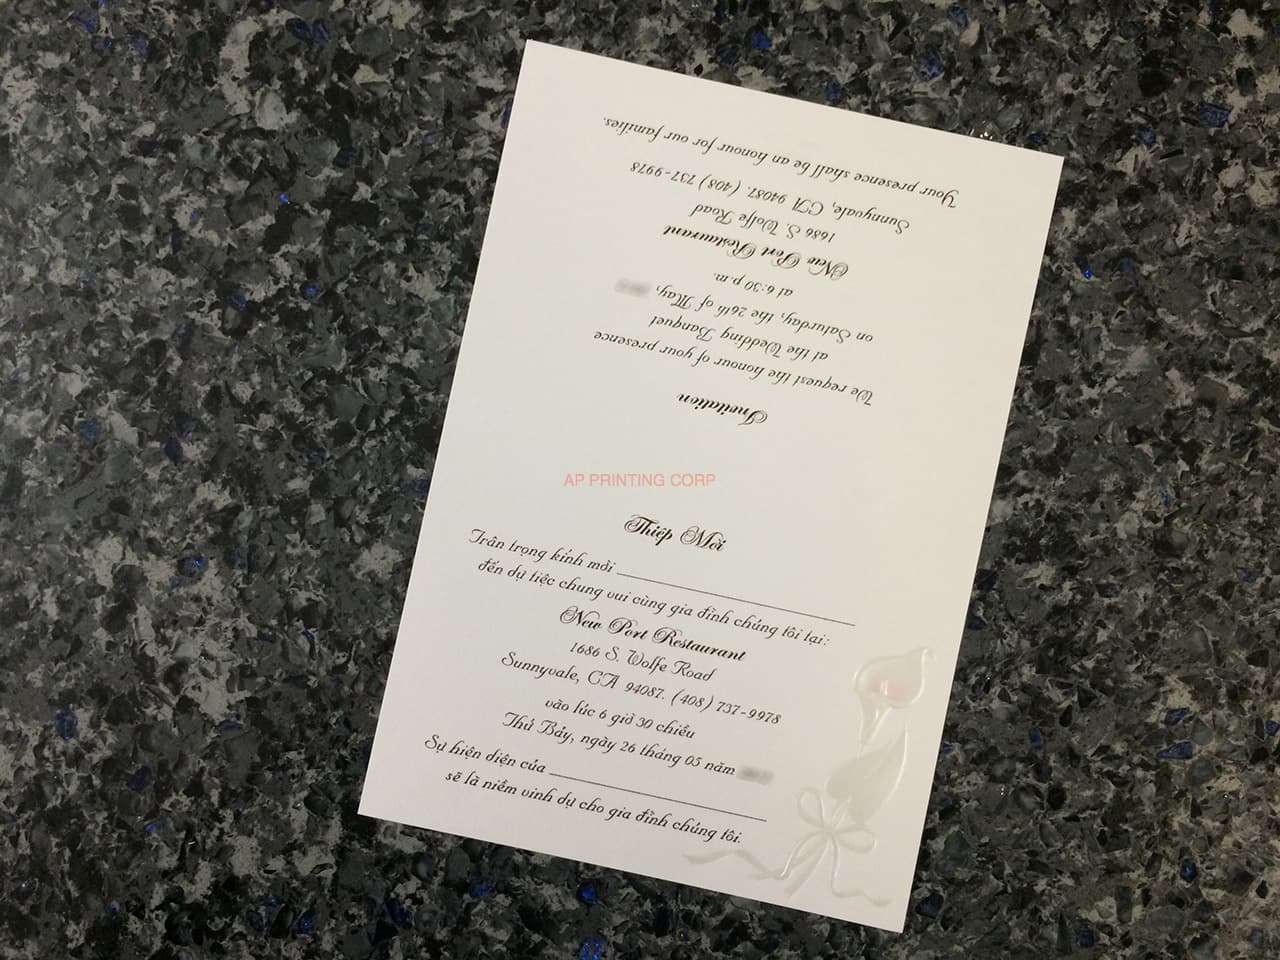 Your presence shall be an honour for our families.
Sunnyvale, CA 94087. (408) 737-9978
1686 S. Wolfe Road
New Port Restaurant
at 6:30 p.m.
on Saturday, the 26th of May,
at the Wedding Banquet
We request the honour of your presence
Invitation
AP PRINTING CORP
Thiệp Mời
Trân trọng kính mời
đến dự tiệc chung vui cùng gia đình chúng tôi tại:
New Port Restaurant
1686 S. Wolfe Road
Sunnyvale, CA 94087. (408) 737-9978
vào lúc 6 giờ 30 chiều
Thứ Bảy, ngày 26 tháng 05 năm
Sự hiện diện của
sẽ là niềm vinh dự cho gia đình chúng tôi.